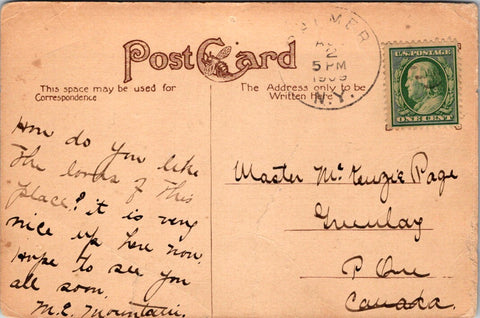 Post Card
This space may be used for
Correspondence
The Address only to be
Written here
PALMER
2
5 PM
1909
N.Y.
U.S. POSTAGE
ONE CENT
How do you like
the looks of this
place? it is very
nice up here now.
Hope to see you
all soon.
M.E. Mountain.
Master McKenzie Page
Greenlay
P Que
Canada.